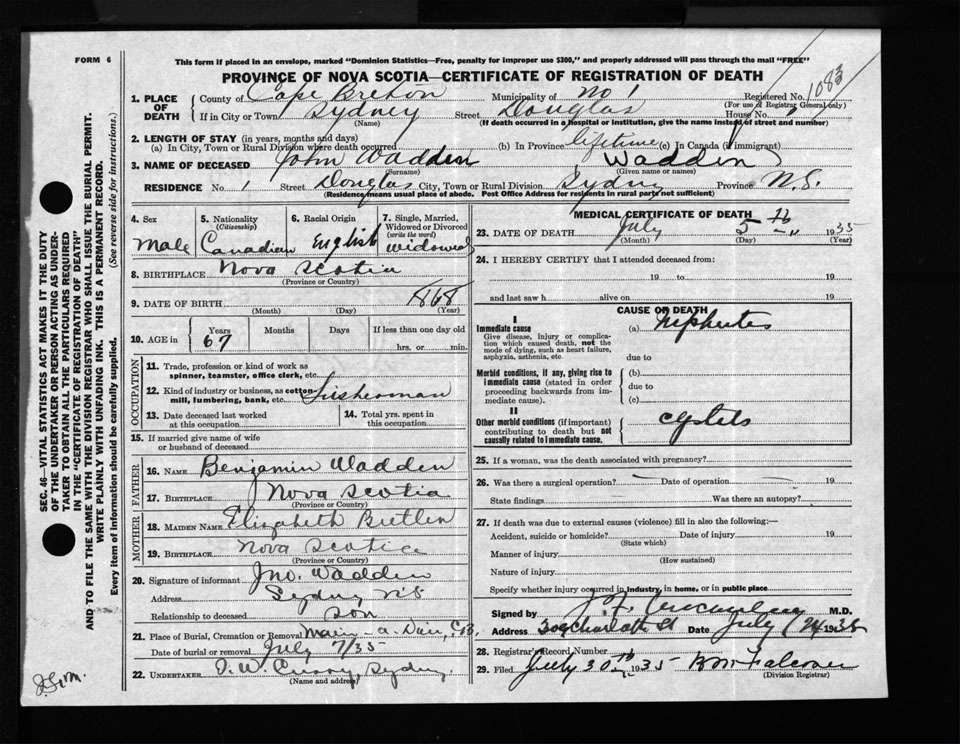 FORM 6
This form if placed in an envelope, marked "Dominion Statistics—Free, penalty for improper use $300," and properly addressed will pass through the mail "FREE"
PROVINCE OF NOVA SCOTIA—CERTIFICATE OF REGISTRATION OF DEATH
1083
1. PLACE OF DEATH
County of Cape Breton Municipality of No 1 Registered No.
(For use of Registrar General only)
If in City or Town Sydney Street Douglas House No. 1
(Name) (If death occurred in a hospital or institution, give the name instead of street and number)
2. LENGTH OF STAY (in years, months and days)
(a) In City, Town or Rural Division where death occurred (b) In Province lifetime (c) In Canada (if immigrant)
3. NAME OF DECEASED John Wadden Wadden
(Surname) (Given name or names)
RESIDENCE No. 1 Street Douglas City, Town or Rural Division Sydney Province N.S.
(Residence means usual place of abode. Post Office Address for residents in rural parts not sufficient)
4. Sex
Male
5. Nationality
(Citizenship)
Canadian
6. Racial Origin
English
7. Single, Married, Widowed or Divorced
(write the word)
widowed
8. BIRTHPLACE Nova Scotia
(Province or Country)
9. DATE OF BIRTH 1868
(Month) (Day) (Year)
10. AGE in
Years Months Days If less than one day old
67 hrs. or min.
OCCUPATION
11. Trade, profession or kind of work as spinner, teamster, office clerk, etc.
12. Kind of industry or business, as cotton-mill, lumbering, bank, etc. Fisherman
13. Date deceased last worked at this occupation
14. Total yrs. spent in this occupation
15. If married give name of wife or husband of deceased
FATHER
16. NAME Benjamin Wadden
17. BIRTHPLACE Nova Scotia
(Province or Country)
MOTHER
18. MAIDEN NAME Elizabeth
19. BIRTHPLACE Nova Scotia
(Province or Country)
20. Signature of informant Jno. Wadden
Address Sydney N.S.
Relationship to deceased son
21. Place of Burial, Cremation or Removal Main-a-Dieu, C.B.
Date of burial or removal July 7/35
22. UNDERTAKER Sydney
(Name and address)
MEDICAL CERTIFICATE OF DEATH
23. DATE OF DEATH July 5th 1935
(Month) (Day) (Year)
24. I HEREBY CERTIFY that I attended deceased from:
19 to 19
and last saw h alive on 19
CAUSE OF DEATH
I
Immediate cause
Give disease, injury or complication which caused death, not the mode of dying, such as heart failure, asphyxia, asthenia, etc.
(a) Nephrites
due to
Morbid conditions, if any, giving rise to immediate cause (stated in order proceeding backwards from immediate cause).
(b)
due to
(c)
II
Other morbid conditions (if important) contributing to death but not causally related to immediate cause.
25. If a woman, was the death associated with pregnancy?
26. Was there a surgical operation? Date of operation 19
State findings Was there an autopsy?
27. If death was due to external causes (violence) fill in also the following:—
Accident, suicide or homicide? Date of injury 19
(State which)
Manner of injury
(How sustained)
Nature of injury
Specify whether injury occurred in industry, in home, or in public place
Signed by M.D.
Address Charlotte St Date July 24 1935
28. Registrar's Record Number
29. Filed July 30th 1935 Falconer
(Division Registrar)
SEC. 46—VITAL STATISTICS ACT MAKES IT THE DUTY
OF THE UNDERTAKER OR PERSON ACTING AS UNDER-
TAKER TO OBTAIN ALL THE PARTICULARS REQUIRED
IN THE "CERTIFICATE OF REGISTRATION OF DEATH"
AND TO FILE THE SAME WITH THE DIVISION REGISTRAR WHO SHALL ISSUE THE BURIAL PERMIT.
WRITE PLAINLY WITH UNFADING INK. THIS IS A PERMANENT RECORD.
Every item of Information should be carefully supplied. (See reverse side for instructions.)